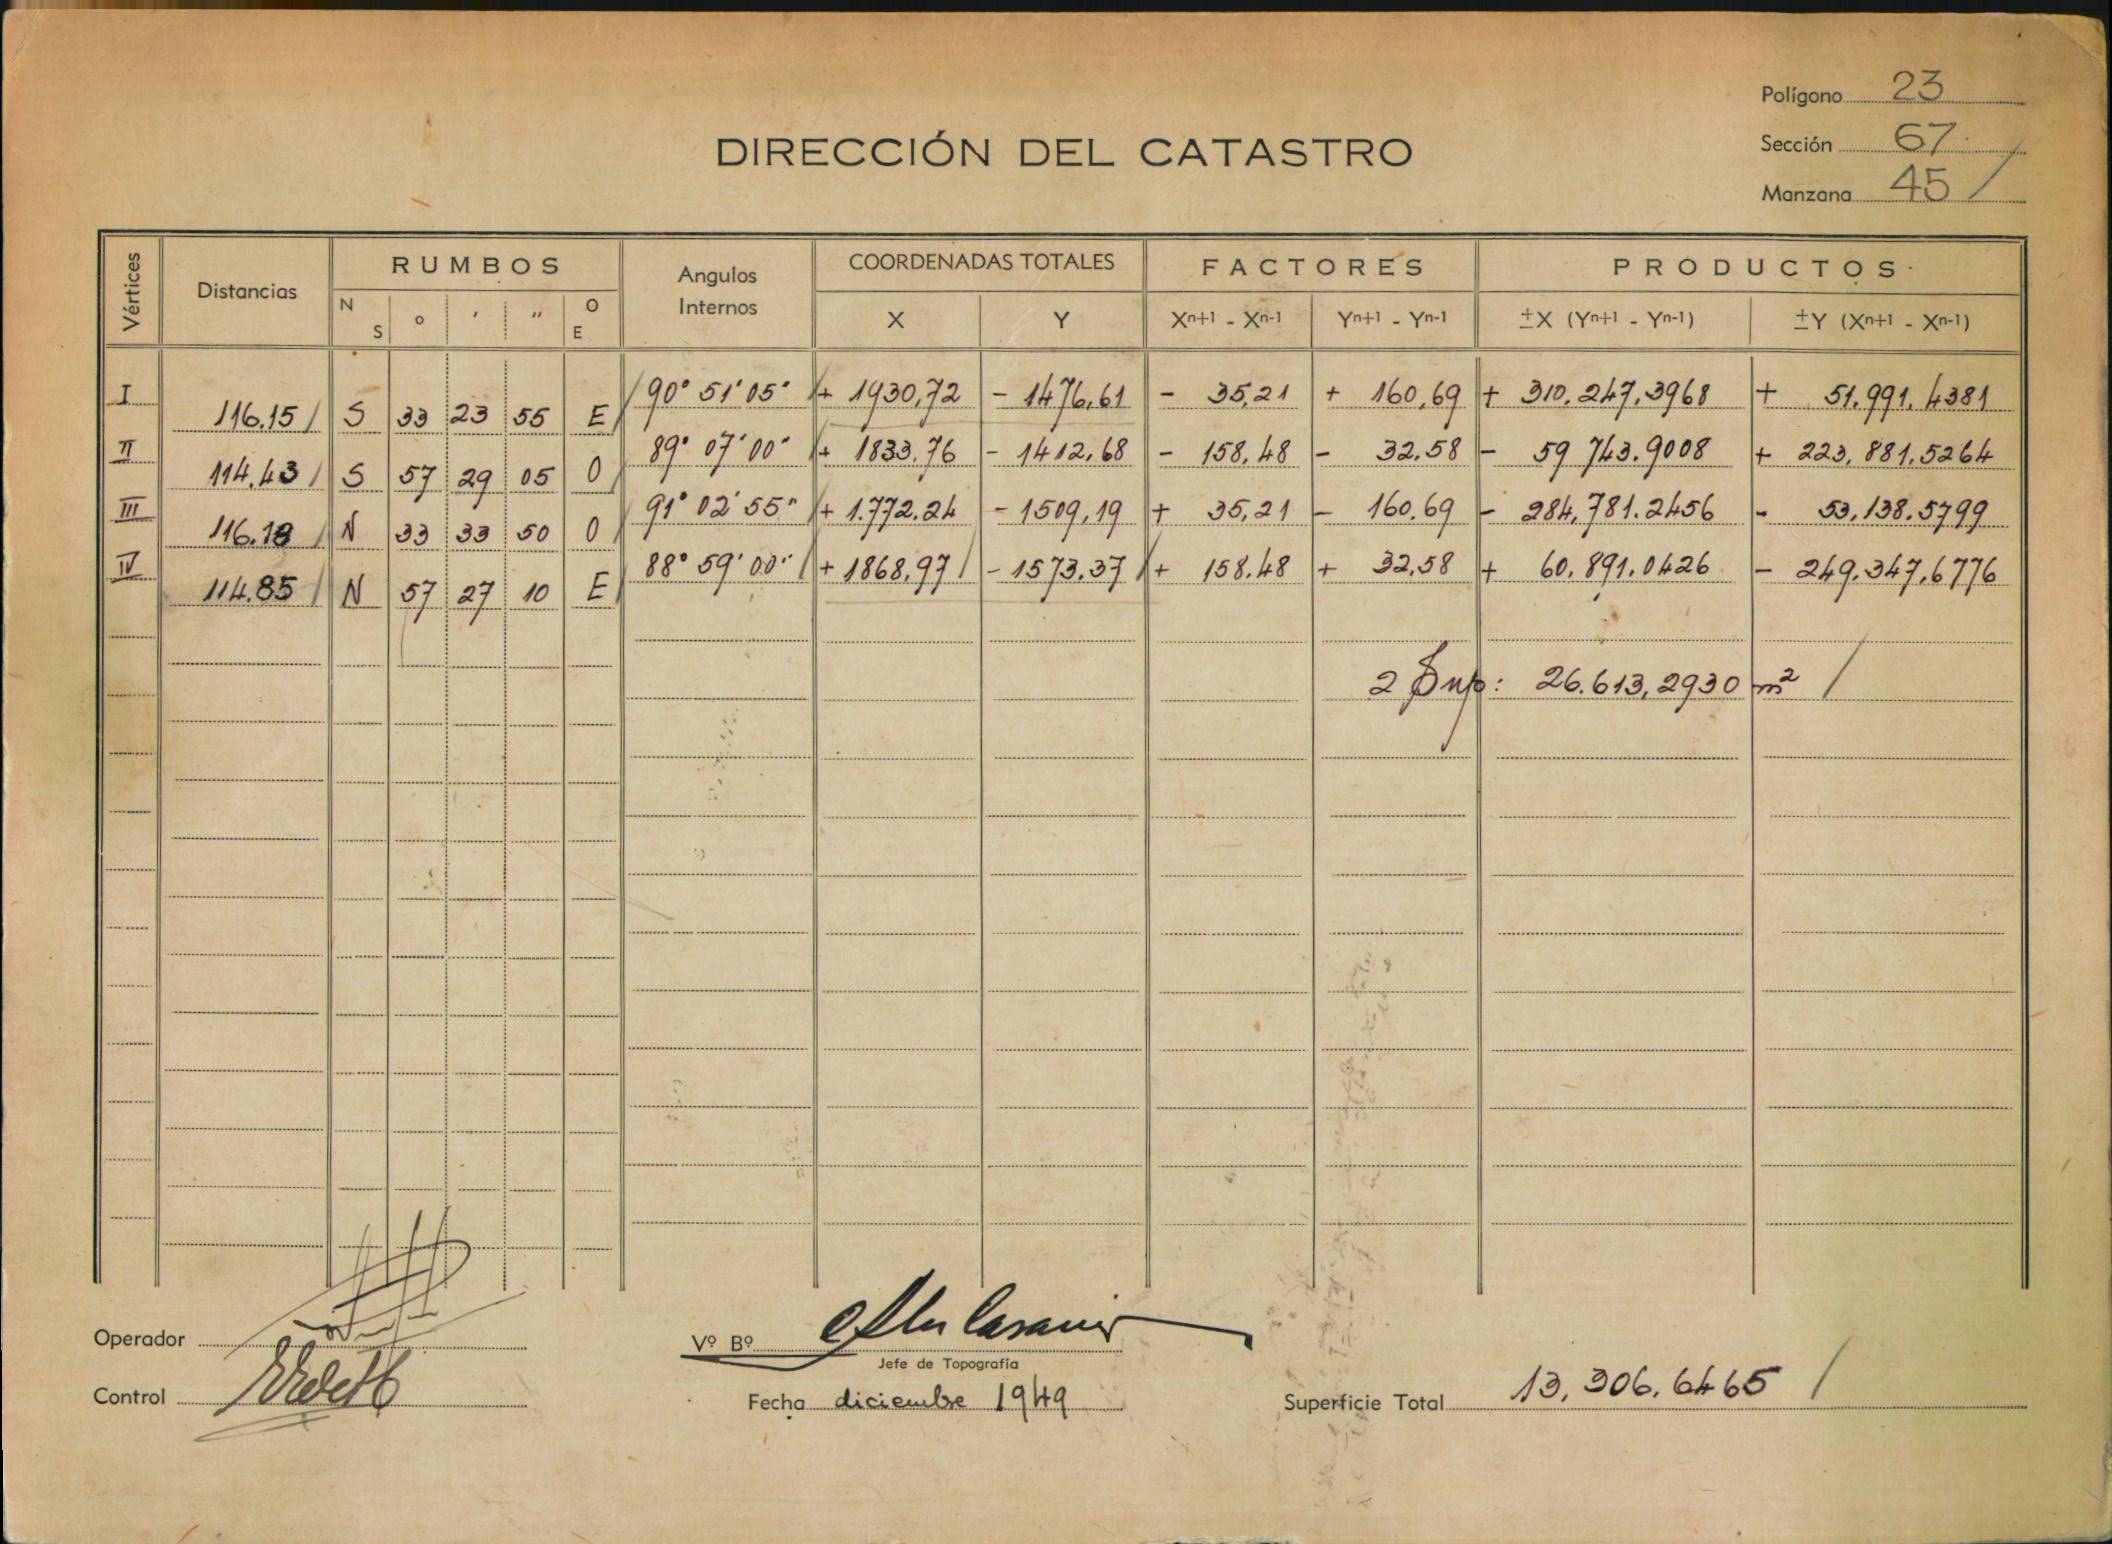 Polígono 23
Sección 67
Manzana 45
DIRECCIÓN DEL CATASTRO
Vértices Distancias RUMBOS Angulos Internos COORDENADAS TOTALES FACTORES PRODUCTOS
N S o ' " O E X Y Xn+1 - Xn-1 Yn+1 - Yn-1 ±X (Yn+1 - Yn-1) ±Y (Xn+1 - Xn-1)
I 90° 51' 05" + 1930,72 - 1476,61 - 35,21 + 160,69 + 310.247,3968 + 51.991,4381
116.15 S 33 23 55 E
II 89° 07' 00" + 1833.76 - 1412,68 - 158,48 - 32.58 - 59 743.9008 + 223,881,5264
114,43 S 57 29 05 O
III 91° 02' 55" + 1.772.24 - 1509,19 + 35,21 - 160.69 - 284,781.2456 - 53,138.5799
116.18 N 33 33 50 O
IV 88° 59' 00" + 1868,97 - 1573.37 + 158.48 + 32,58 + 60.891.0426 - 249.347,6776
114.85 N 57 27 10 E
2 Sup: 26.613,2930 m²
Operador
Vº Bº
Jefe de Topografía
Control
Fecha diciembre 1949
Superficie Total 13,306.6465